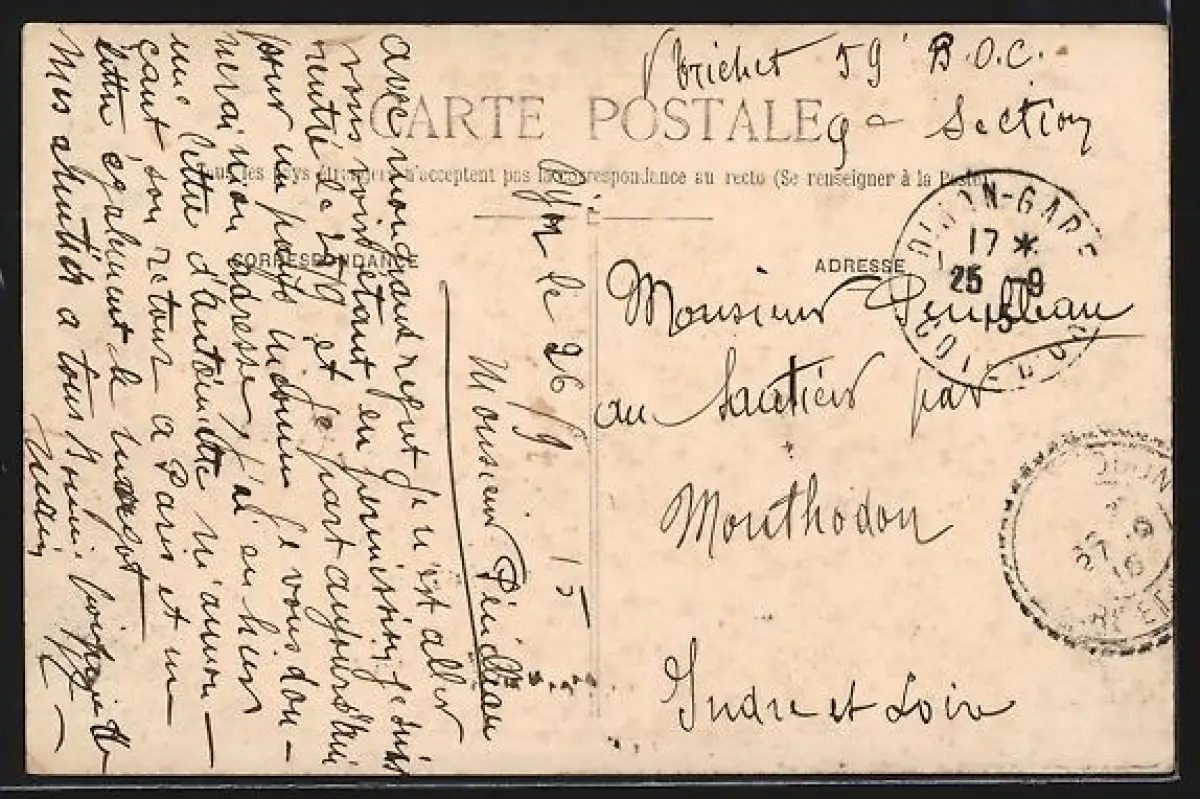 Brichet 59e B.O.C.
9e Section
CARTE POSTALE
Tous les pays étrangers n'acceptent pas la correspondance au recto (Se renseigner à la Poste)
CORRESPONDANCE
ADRESSE
DIJON-GARE
17 *
25 9
15
COTE D'OR
Monsieur Pénilleau
au Sautier par
Monthodon
Indre et Loir
le 26/9 15
Monsieur Pénilleau
avec mon grand regret je n'est aller
vous voir étant en permission je suis
rentré le 25/9 et je part aujourd'hui
pour un pays inconnu je vous don-
nerai mon adresse, j'ai en hier
une lettre d'antoinette m'annon-
çant son retour a Paris et une
lettre également de
Mes amitiés a tous